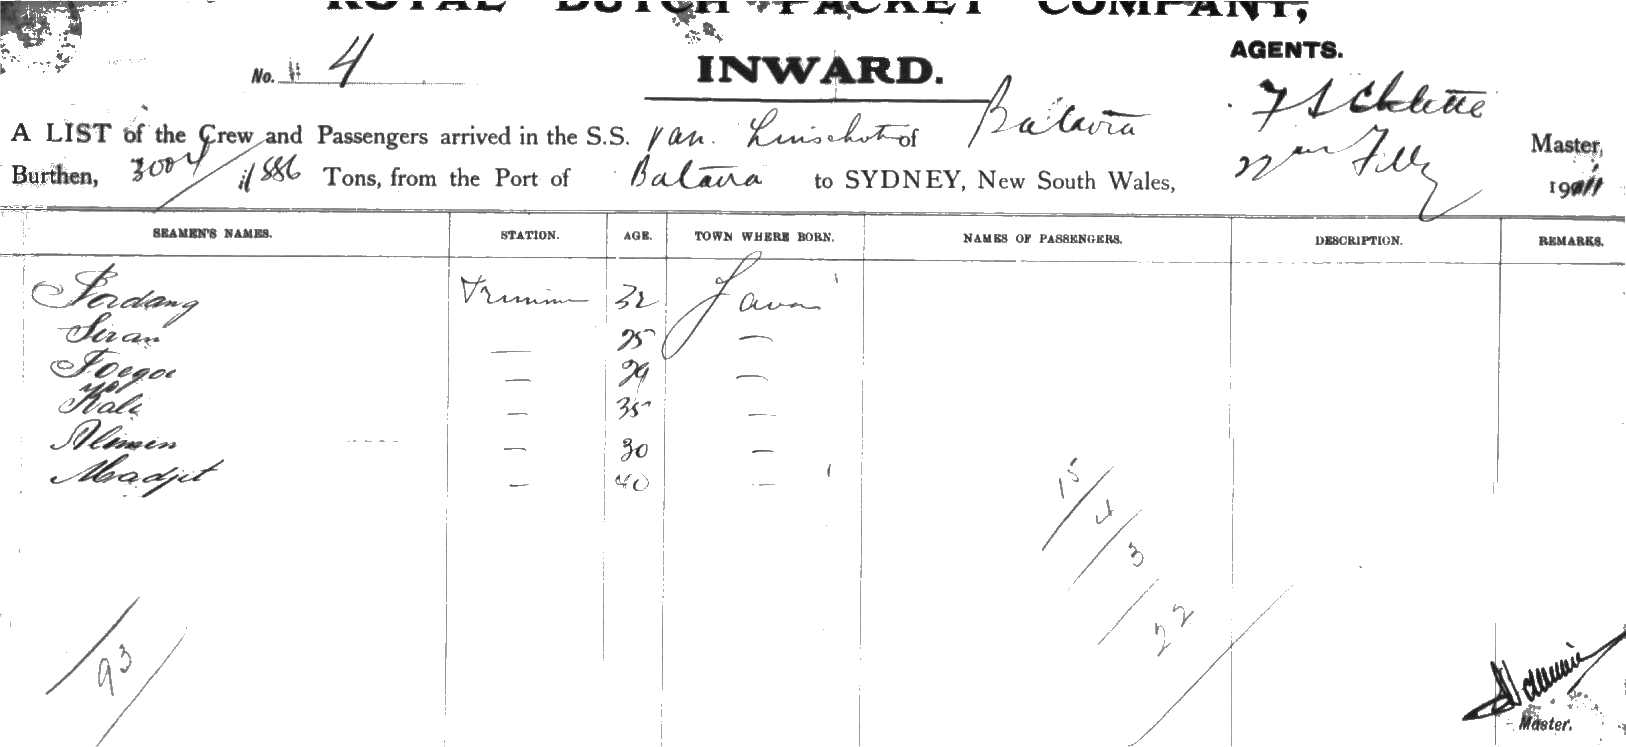 ROYAL DUTCH PACKET COMPANY,
AGENTS.
No. 4
INWARD.
A LIST of the Crew and Passengers arrived in the S.S. van Linschoten of Batavia Master,
Burthen, 3004/1886 Tons, from the Port of Batavia to SYDNEY, New South Wales, 1911
SEAMEN'S NAMES. STATION. AGE. TOWN WHERE BORN. NAMES OF PASSENGERS. DESCRIPTION. REMARKS.
Sordang 32 Java
Siran — 25 —
Toegoe — 29 —
Kali — 35 —
Alimin — 30 —
Madjit — 40 —
15
4
3
22
93
Master.